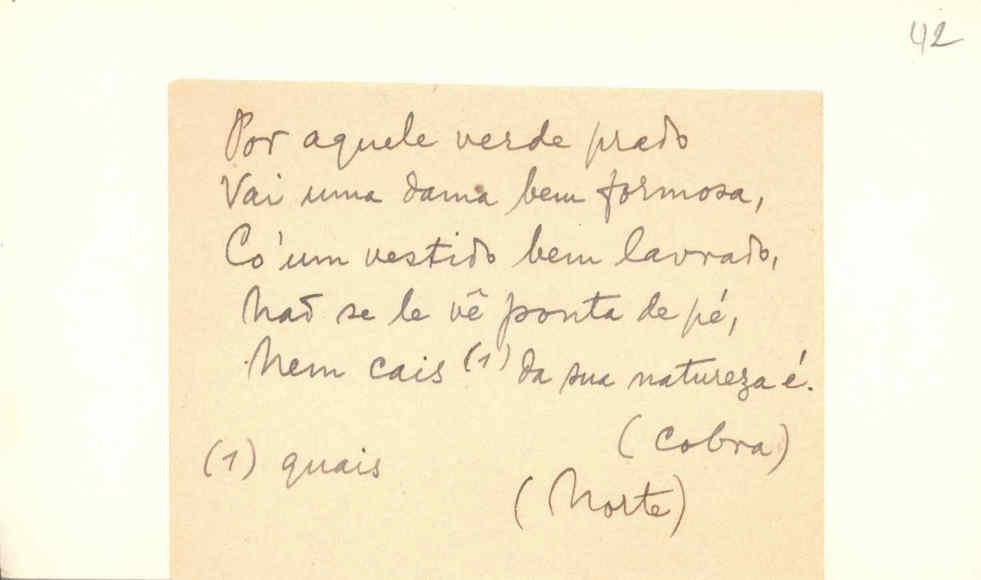 42
Por aquele verde prado
Vai uma dama bem formosa,
Có'um vestido bem lavrado,
Não se le vê ponta de pé,
Nem cais (1) da sua natureza é.
(Cobra)
(1) quais
(Norte)